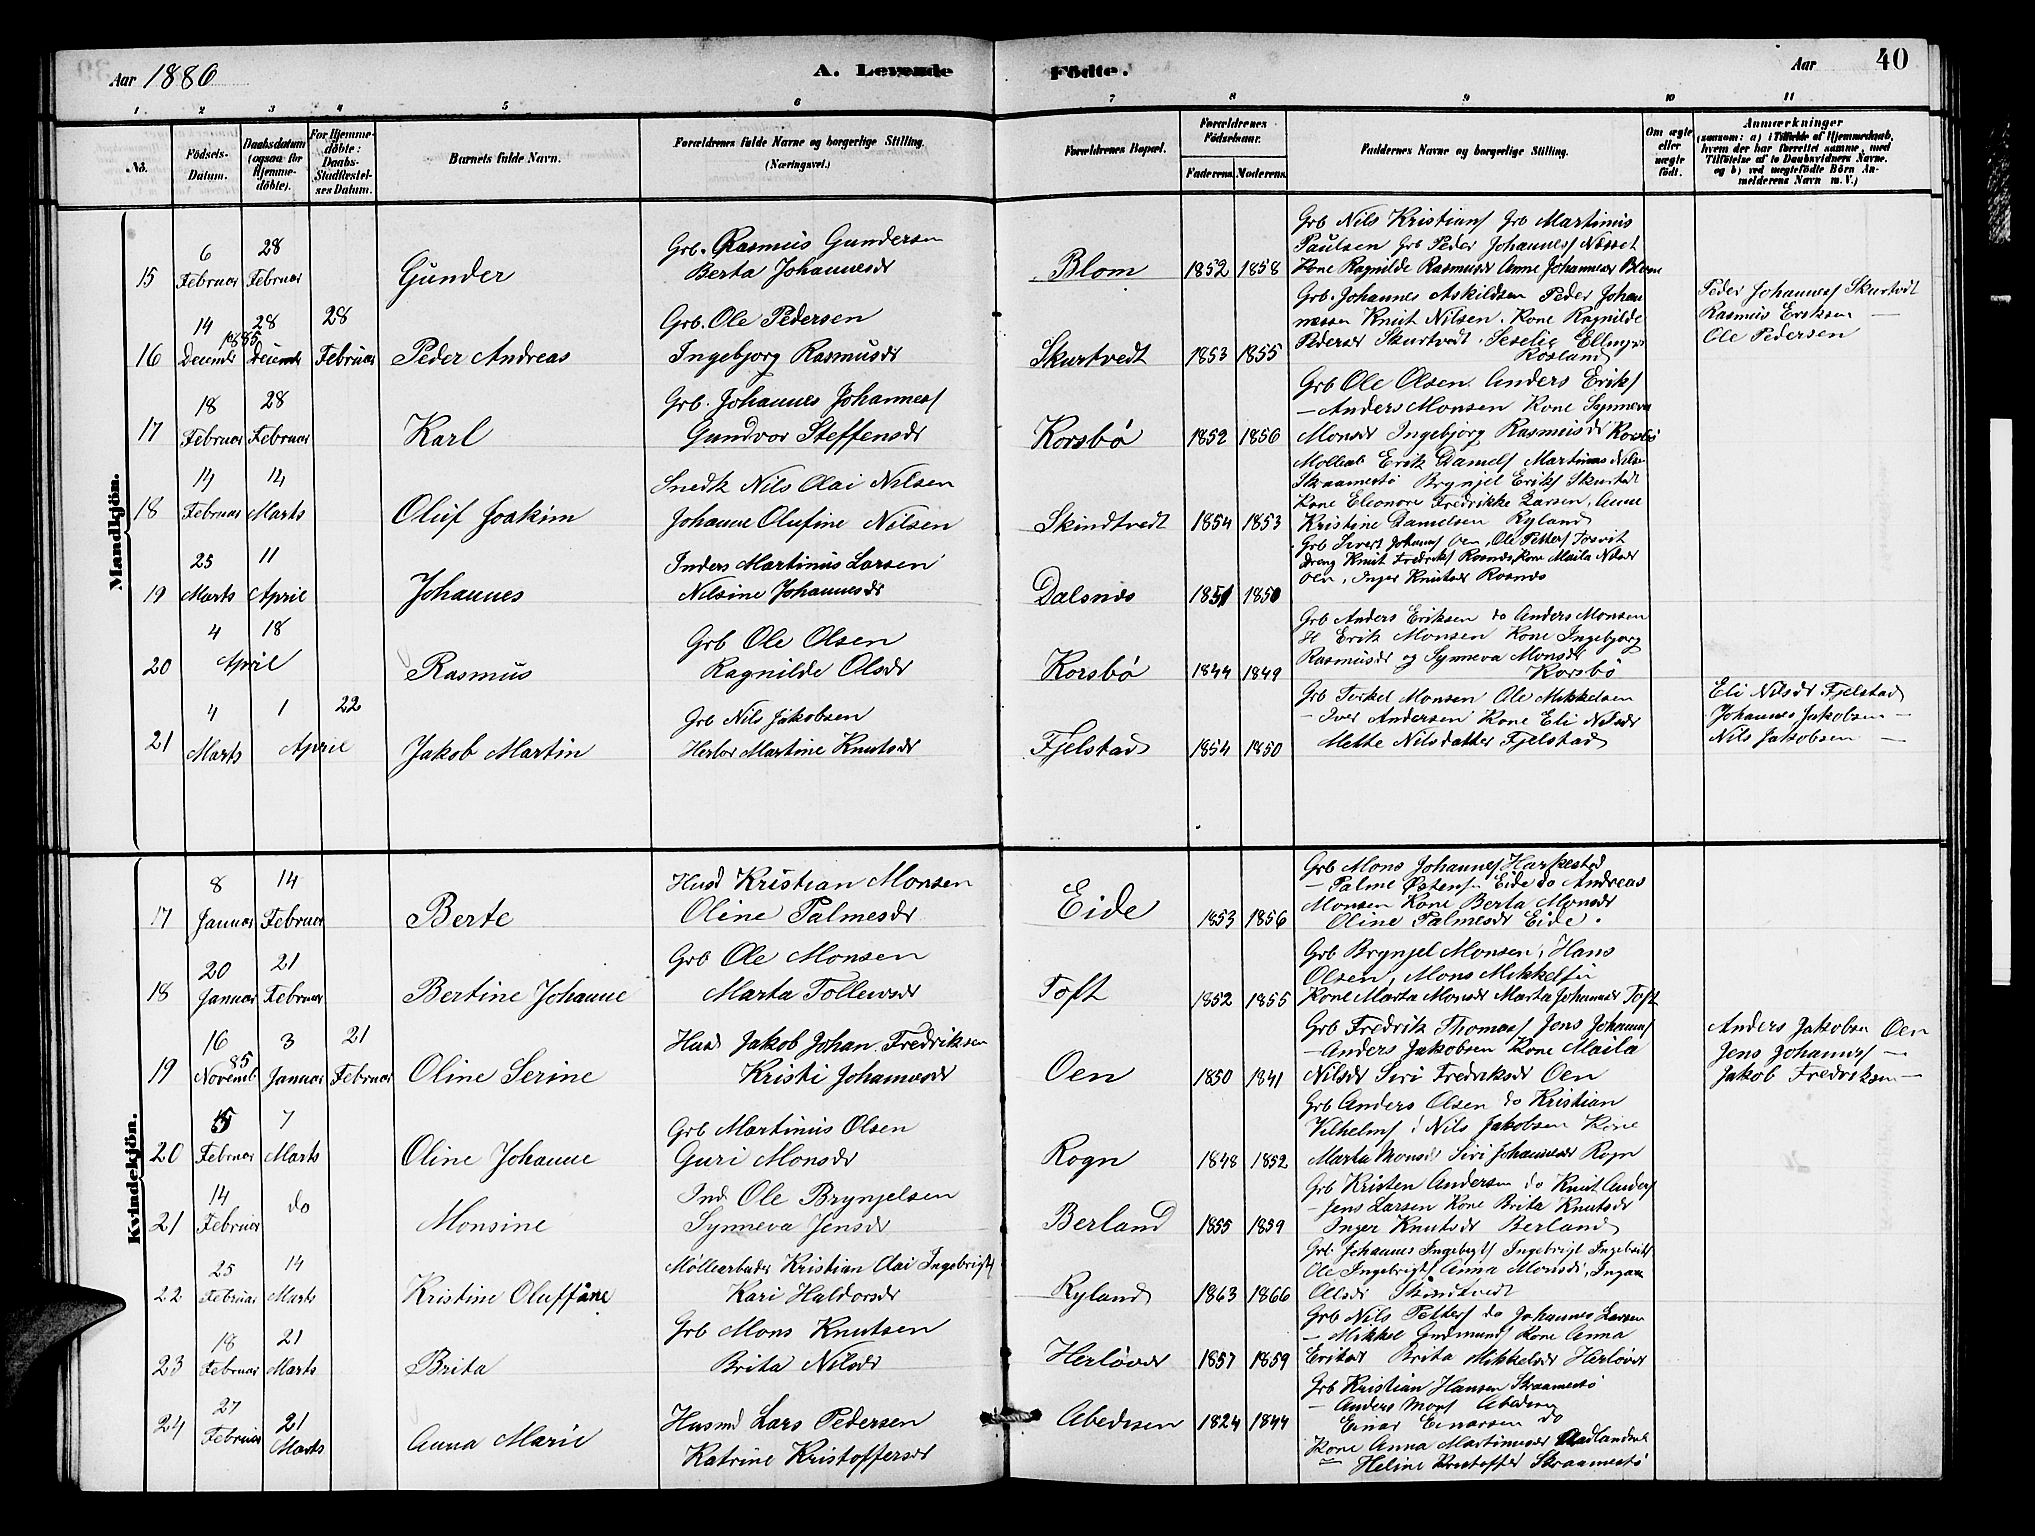 Aar 1886
A. Levende Födte.
Aar 40
1 2 3 4 5 6 7 8 9 10 11
No.
Födsels-Datum.
Daabsdatum (ogsaa for Hjemmedöbte).
For Hjemmedöbte: Daabs-Stadfæstelses Datum.
Barnets fulde Navn.
Forældrenes fulde Navne og borgerlige Stilling. (Næringsvei.)
Forældrenes Bopæl.
Forældrenes Födselsaar.
Faderens. Moderens.
Faddernes Navne og borgerlige Stilling.
Om ægte eller uægte födt.
Anmærkninger
(saasom: a) i Tilfælde af Hjemmedaab, hvem der har forrettet samme, med Tilföielse af to Daabsvidners Navne. og b) ved uægtefödte Börn Anmelderens Navn m. V.)
Mandkjön.
15 6 Februar 28 Februar Gunder
Grb. Rasmus Gundersen
Berta Johannesdr
Blom 1852 1858
Grb Nils Kristians Grb Martinus
Paulsen Grb Peder Johannes Nesset
Kone Ragnilde Rasmusdr Anne Johannesdr Blom
16 14 Decembr 1885 28 Decembr 28 Februar Peder Andreas
Grb. Ole Pedersen
Ingebjorg Rasmusdr
Skurtvedt 1853 1855
Grb. Johannes Askildsen Peder Johan
nessen Knut Nilsen. Kone Ragnilde
Pedersdr Skurtvedt. Seselie Ellingsdr
Rosland
Peder Johannes Skurtvdt
Rasmus Eriksen —
Ole Pedersen
17 18 Februar 28 Februar Karl
Grb. Johannes Johannes
Gundvor Steffensdr
Korsbø 1852 1856
Grb Ole Olsen. Anders Eriks
— Anders Monsen Kone Synneva
Monsdr Ingebjorg Rasmusdr Korsbø
18 14 Februar 14 Marts Oluf Joakim
Snedk Nils Olai Nilsen
Johanne Olufine Nilsen
Skindtvedt 1854 1853
Mollearb Erik Daniels Martinus Nilse
Straamestø Brynjel Eriks Skurtvdt
Kone Eleonore Fredrikke Larsen, Anne
Kristine Danielsen Ryland
19 25 Marts 11 April Johannes
Inders Martinus Larsen
Nilsine Johannesdr
Dalsnes 1851 1850
Grb Sivert Johans Oen, Ole Petters
Dreng Knut Fredriks Rosnes, Kone Maila Nilsdr
Oen, Inger Knutsdr Rosnes
20 4 18 April Rasmus
Grb Ole Olsen
Ragnilde Olsdr
Korsbø 1844 1849
Grb Anders Eriksen do Anders Monsen
H Erik Monsen Kone Ingebjorg
Rasmusdr og Synneva Monsdr
Korsbø
21 4 Marts 1 April 22 Jakob Martin
Grb Nils Jakobsen
Herbor Martine Knutsdr
Fjelstad 1854 1850
Grb Torkel Monsen Ole Mikkelsen
— Iver Andersen Kone Eli Nilsdr
Mette Nilsdatter Fjelstad
Eli Nilsdr. Fjelstad
Johannes Jakobsen —
Nils Jakobsen —
Kvindekjön.
17 8 Januar 14 Februar Berte
Husd Kristian Monsen
Oline Palmesdr
Eide 1853 1856
Grb Mons Johannes Harkestad
— Palme Østens Eide do Andreas
Monsen Kone Berta Monsdr
Oline Palmesdr Eide.
18 20 Januar 21 Februar Bertine Johanne
Grb Ole Monsen
Marta Tollevsdr
Toft 1852 1855
Grb Brynjel Monsen, Hans
Olsen, Mons Mikkelsen
Kone Marta Monsdr Marta Johannesdr Toft
19 16 Novemb 85 3 Januar 21 Februar Oline Serine
Husd Jakob Johan. Fredriksen
Kristi Johannesdr
Oen 1850 1841
Grb Fredrik Thomas Jens Johanns
— Anders Jakobsen Kone Maila
Nilsdr Siri Fredriksdr Oen
Anders Jakobsen Oen
Jens Johanns —
Jakob Fredriksen —
20 15 Februar 7 Marts Oline Johanne
Grb Martinus Olsen
Guri Monsdr
Rogn 1848 1852
Grb Anders Olsen do Kristian
Vilhelms, Nils Jakobsen Kone
Marta Monsdr Siri Johannesdr Rogn
21 14 Februar do Monsine
Ind Ole Brynjelsen
Synneva Jensdr
Berland 1855 1859
Grb Kristen Andersen do Knut Anders
— Jens Larsen Kone Brita Knutsdr
Inger Knutsdr Berland
22 25 Februar 14 Marts Kristine Oluffine
Møllearbeder Kristian Olai Ingebrigts
Kari Haldorsdr
Ryland 1863 1866
Grb. Johannes Ingebrigts Ingebrigt Ingebrits
Ole Ingebrigts Anna Monsdr, Ingan
Olsdr Skindtvedt
23 18 Februar 21 Marts Brita
Grb Mons Knutsen
Brita Nilsdr
Herlöver 1857 1859
Grb Nils Petters do Johannes Larsen
— Mikkel Gudmunds Kone Anna
Eriksdr Brita Mikkelsdr Herløver
24 27 Februar 21 Marts Anna Marie
Husmd Lars Pedersen
Katrine Kristoffersdr
Abedesen 1824 1844
Grb Kristian Hansen Straamestø
— Anders Mons Abedesen
Einar Einarsen do
Kone Anna Martinusdr Aadlandsvik
— Heline Kristoffer Straamestø